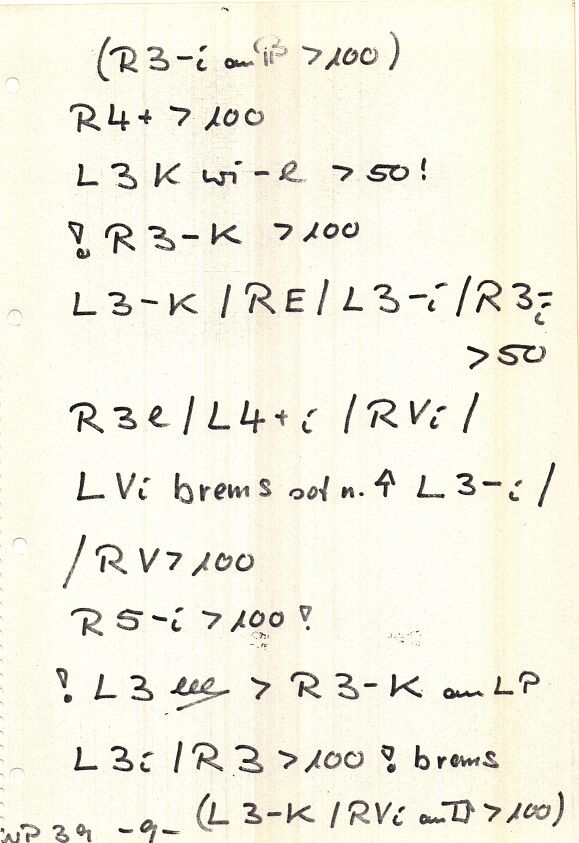 (R3-i am >100)
R4+ >100
L3K wi-l >50!
! R3-K >100
L3-K / RE / L3-i / R3-i
>50
R3l / L4+i / RVi /
LVi brems sof n. ↑ L3-i /
/ RV >100
R5-i >100!
! L3 lll > R3-K am LP
L3i / R3 >100 ! brems
(L3-K / RVi am >100)
WP 39 -9-